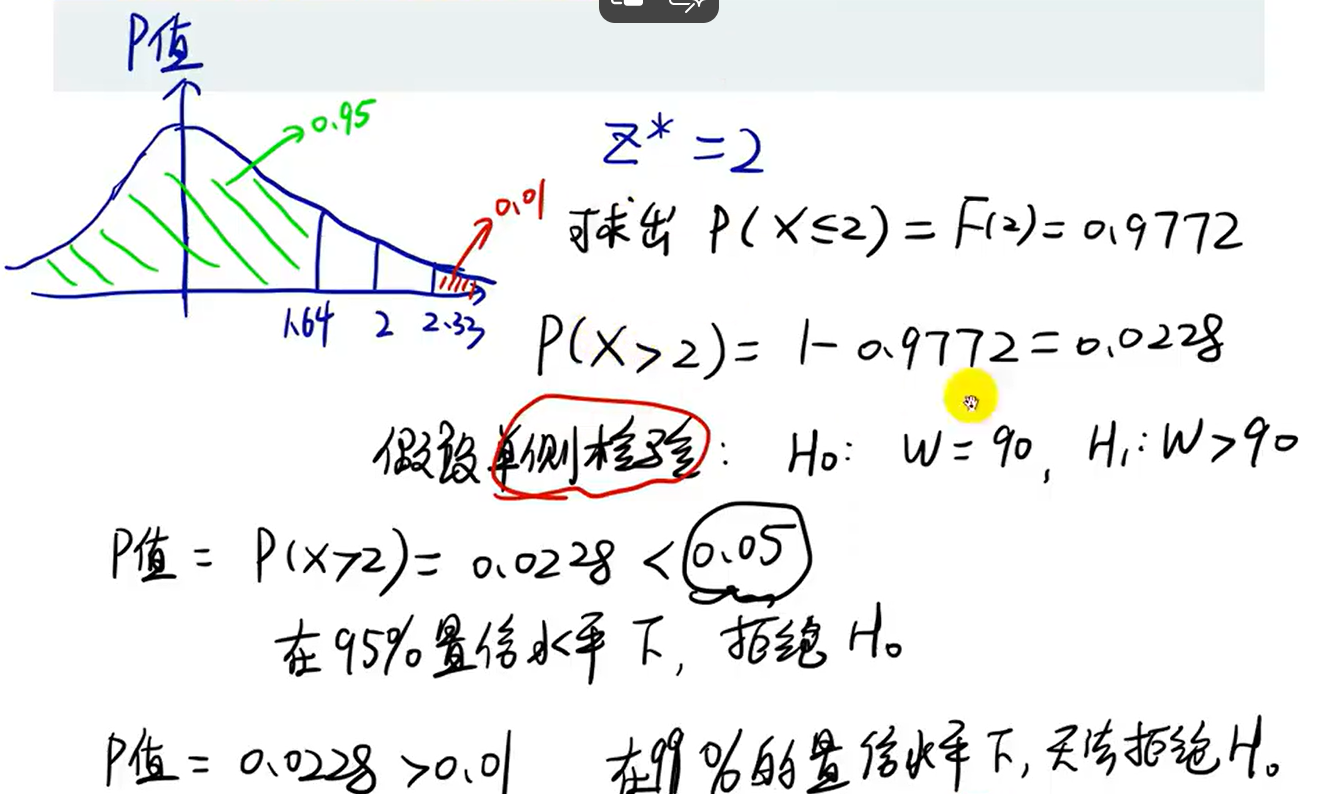 P值
0.95
0.01
1.64 2 2.33
Z* = 2
可求出 P(X≤2) = F(2) = 0.9772
P(X>2) = 1-0.9772 = 0.0228
假设单侧检验: H₀: W = 90, H₁: W > 90
P值 = P(X>2) = 0.0228 < 0.05
在95%置信水平下, 拒绝H₀
P值 = 0.0228 > 0.01 在99%的置信水平下, 无法拒绝H₀